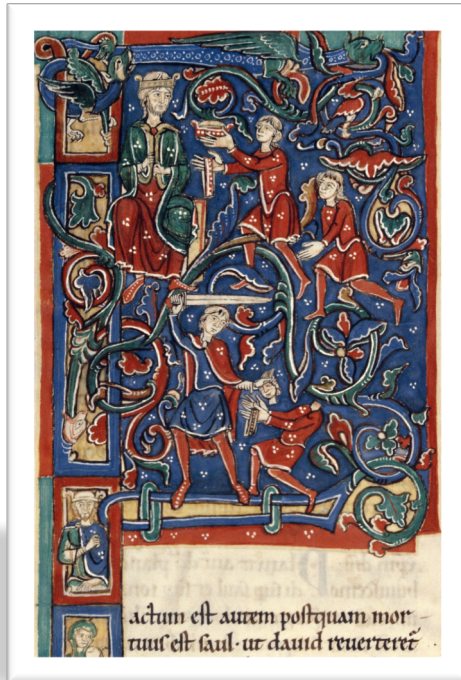 actum est autem postquam mor-
tuus est saul· ut dauid reuerteret̃